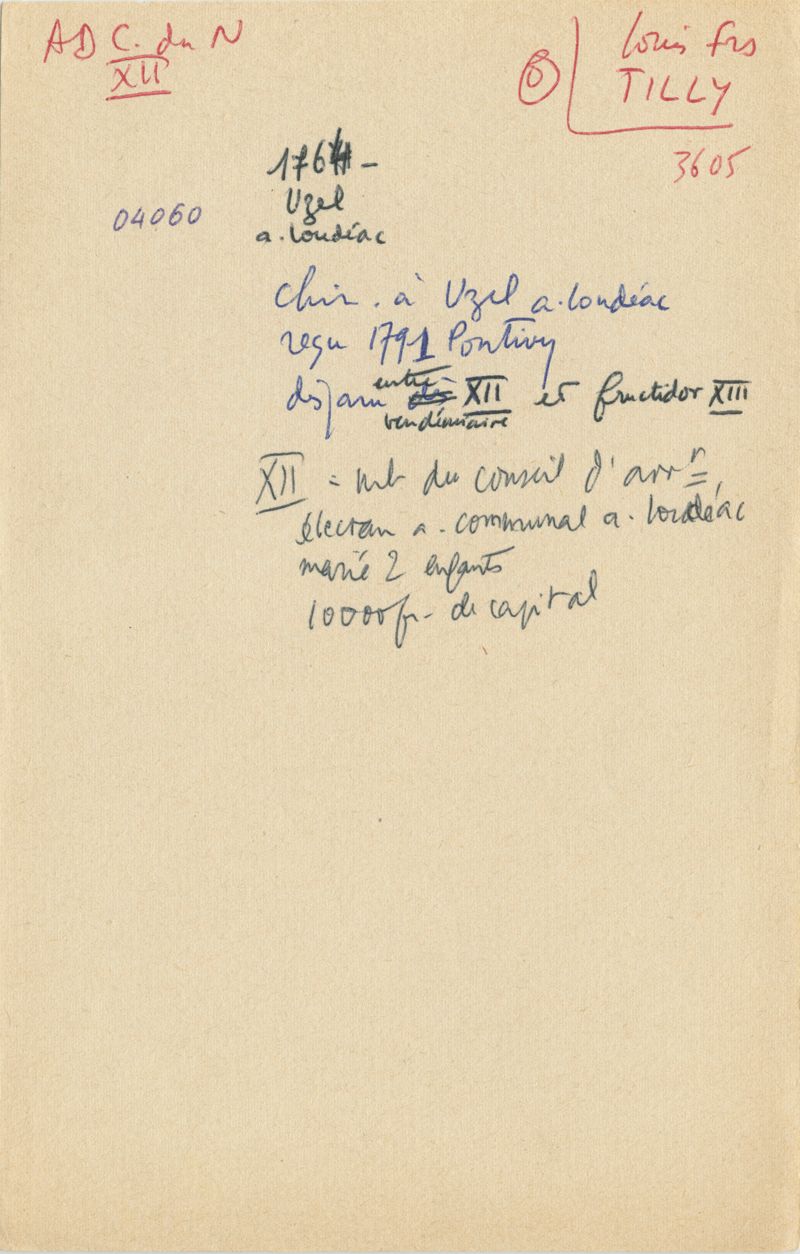 AD C. du N
XII
Louis Frs
TILLY
3605
1764 -
Uzel
a. Loudéac
04060
chir. à Uzel a. Loudéac
reçu 1791 Pontivy
disparu entre XII et fructidor XIII
vendémiaire
XII = mb du conseil d'arrt,
électeur a. communal a. Loudéac
marié 2 enfants
10000 fr. de capital